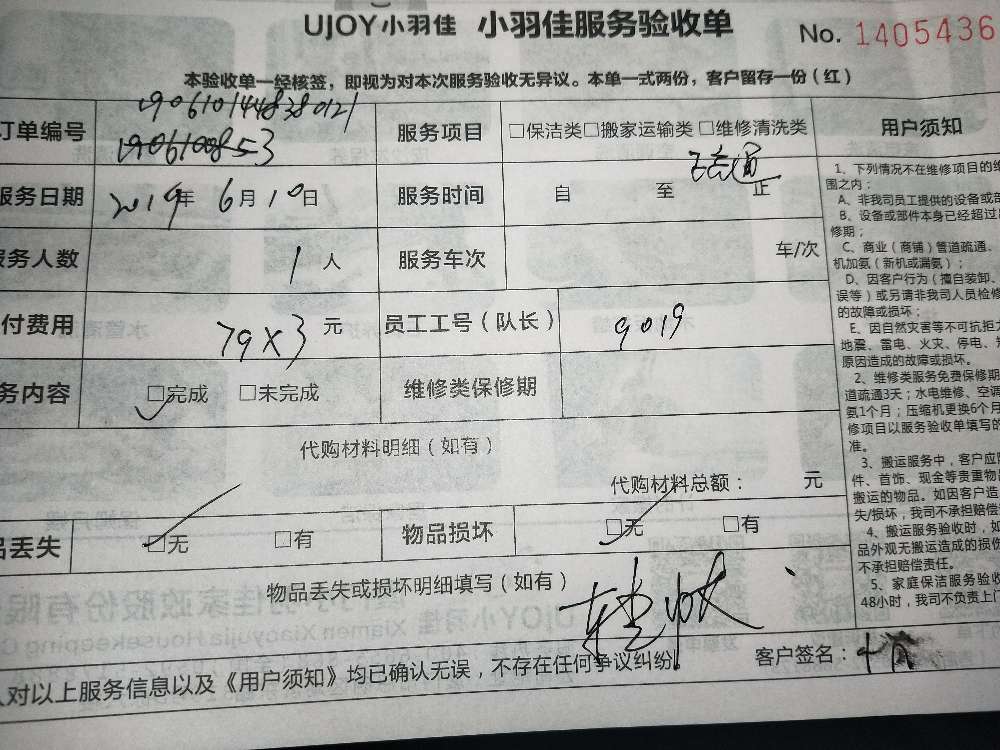 UJOY小羽佳 小羽佳服务验收单 No. 1405436
本验收单一经核签，即视为对本次服务验收无异议。本单一式两份，客户留存一份（红）
订单编号 1906101448380121
1906100853
服务项目 □保洁类□搬家运输类□维修清洗类
服务日期 2019年6月10日 服务时间 自 至 止
服务人数 1人 服务车次 车/次
付费用 79X3元 员工工号（队长） 9019
务内容 □完成 □未完成 维修类保修期
代购材料明细（如有）
代购材料总额： 元
品丢失 □无 □有 物品损坏 □无 □有
物品丢失或损坏明细填写（如有）
人对以上服务信息以及《用户须知》均已确认无误，不存在任何争议纠纷 客户签名：
用户须知
1、下列情况不在维修项目的维
围之内：
A、非我司员工提供的设备或部
B、设备或部件本身已经超过
修期；
C、商业（商铺）管道疏通、
机加氨（新机或漏氨）；
D、因客户行为（擅自装卸、
误等）或另请非我司人员检修
的故障或损坏；
E、因自然灾害等不可抗拒
地震、雷电、火灾、停电、
原因造成的故障或损坏。
2、维修类服务免费保修期
道疏通3天；水电维修、空调
氨1个月；压缩机更换6个月
修项目以服务验收单填写的
准。
3、搬运服务中，客户应
件、首饰、现金等贵重物品
搬运的物品。如因客户造
失/损坏，我司不承担赔偿
4、搬运服务验收时，如
品外观无搬运造成的损伤
不承担赔偿责任。
5、家庭保洁服务验收
48小时，我司不负责上门